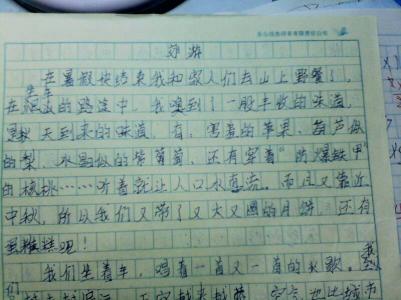 郊游
在暑假快结束我和家人们去山上野餐了,
坐车
在的路途中,我嗅到了一股丰收的味道,
是秋天到来的味道,有,害羞的苹果、葫芦似
的梨、水晶似的紫葡萄,还有穿着“防爆铁甲”
的核桃……听着就让人口水直流。而且又靠近
中秋,所以我们又带了又大又圆的月饼,还有
蛋糕糕呢!
我们坐着车,唱着一首又一首的火歌。我
们 越来越 空气也比城市